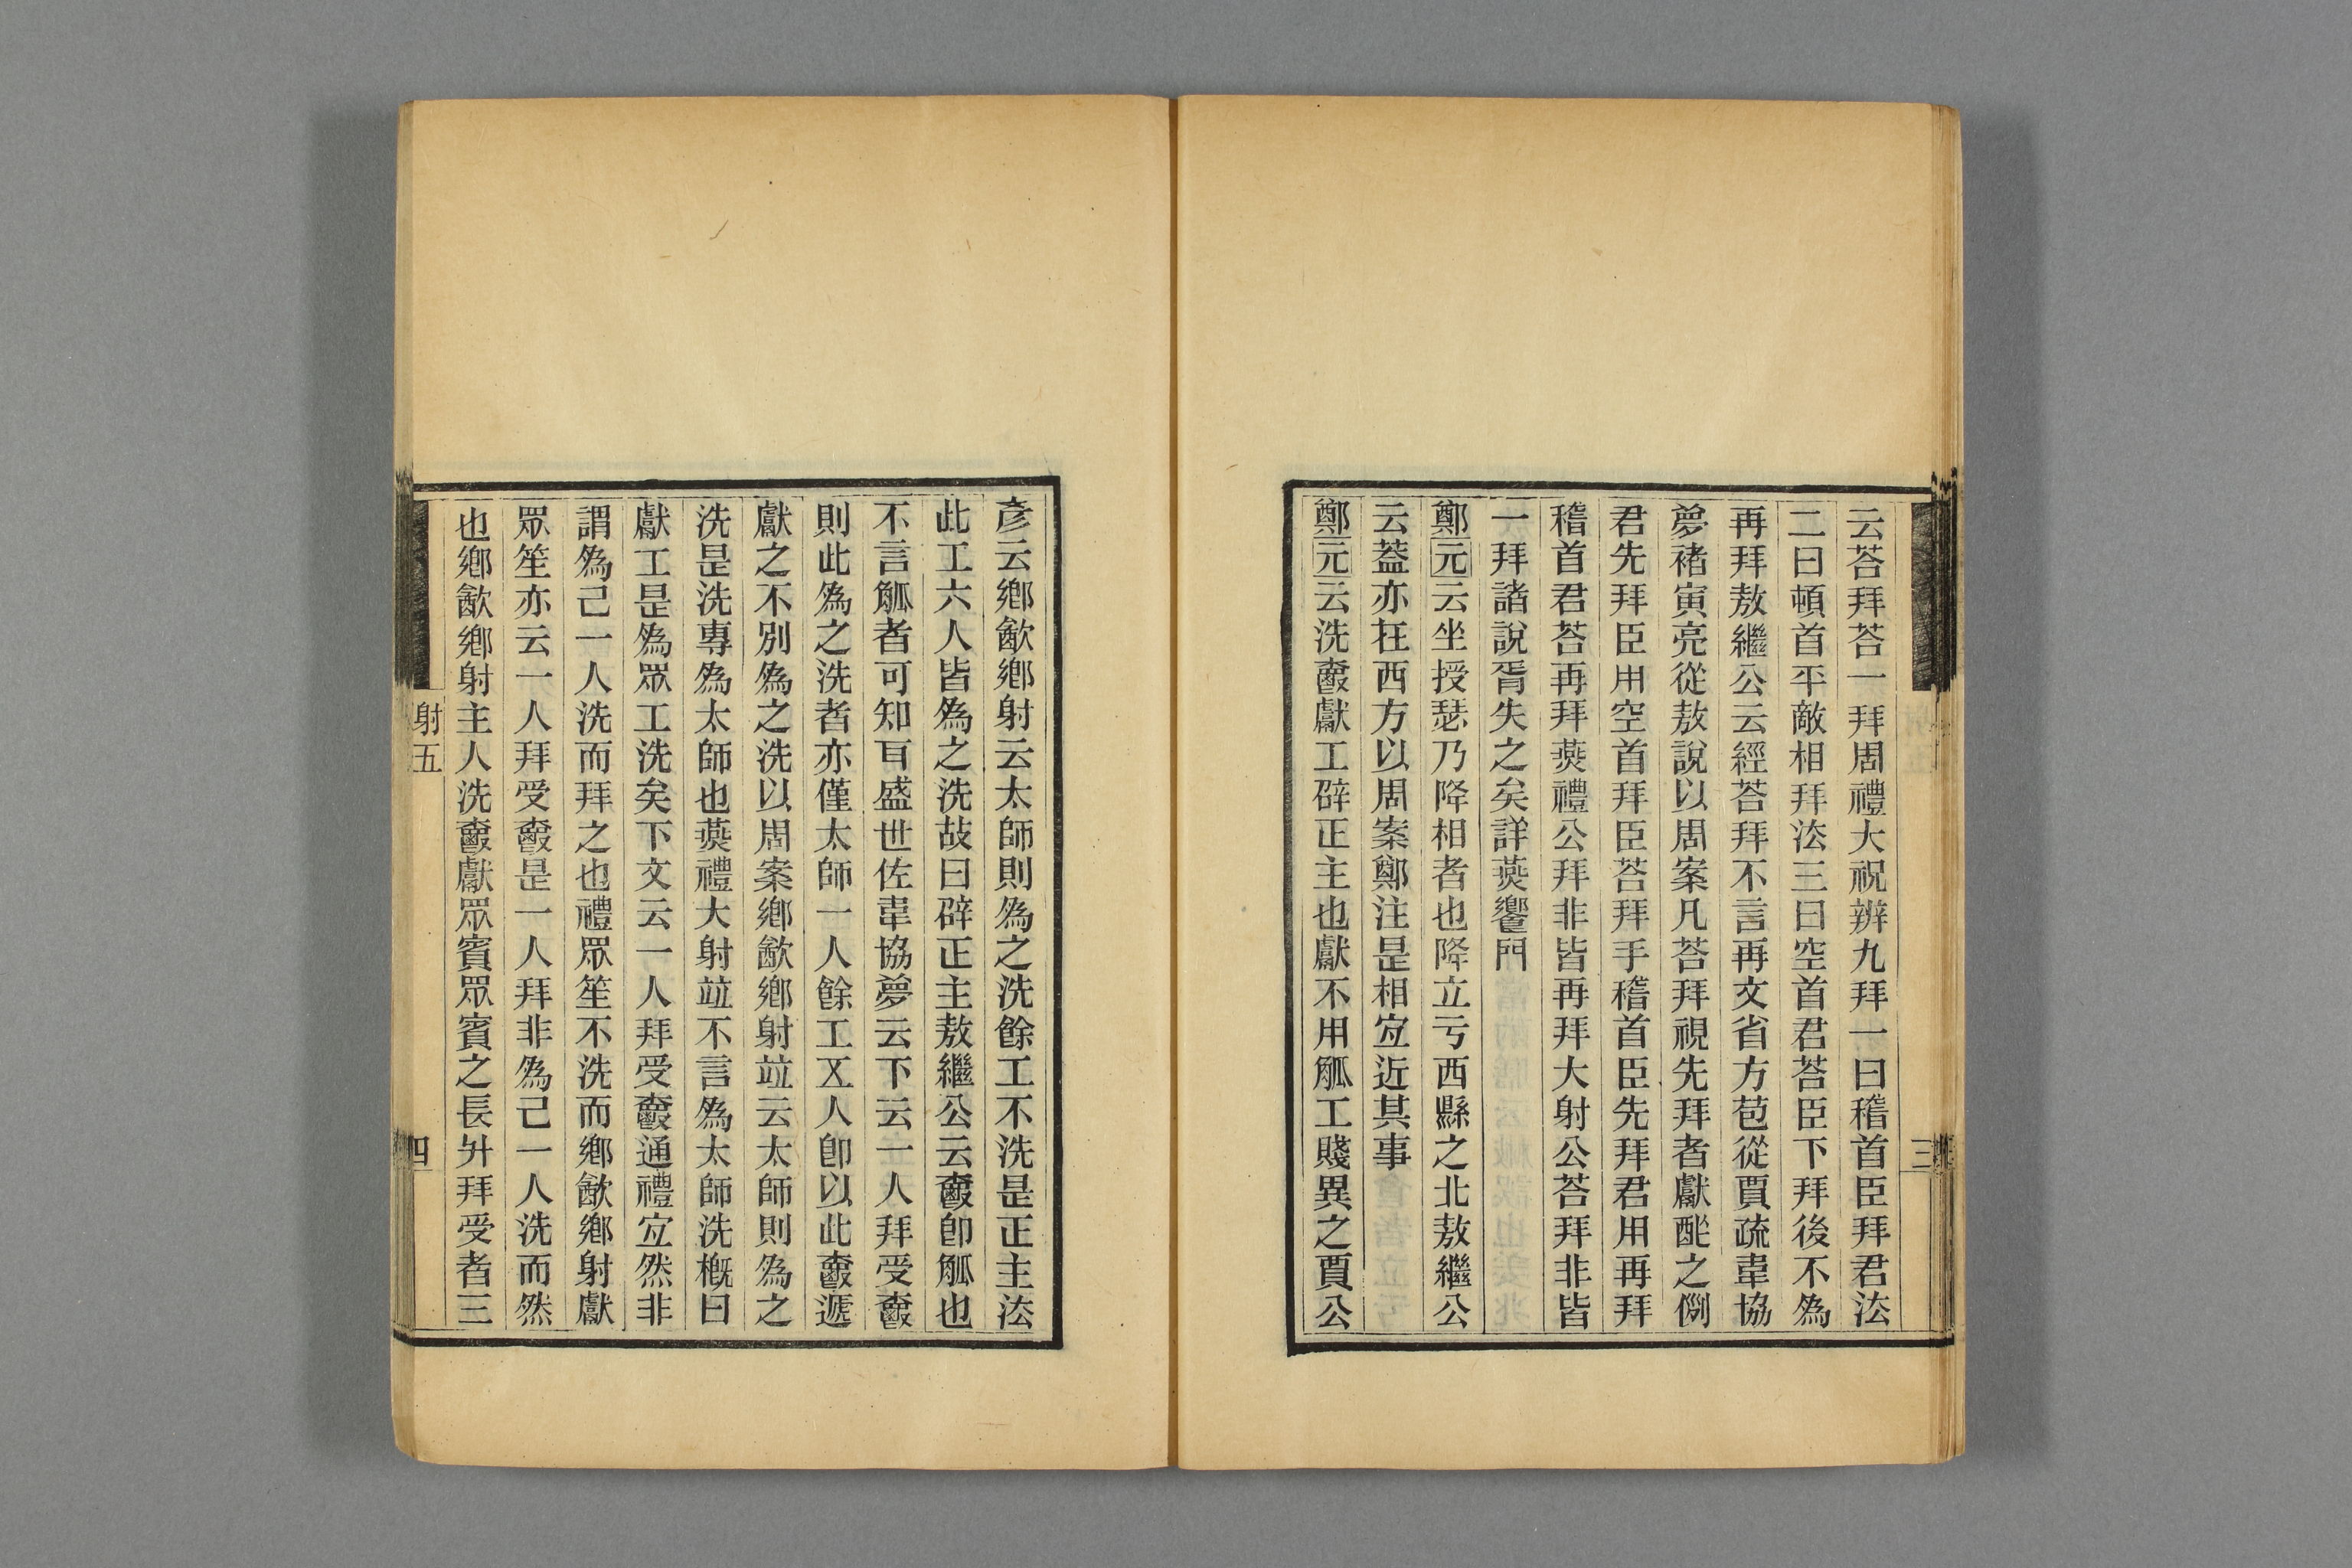 云荅拜荅一拜周禮大祝辨九拜一曰稽首臣拜君法
二曰頓首平敵相拜法三曰空首君荅臣下拜後不為
再拜敖繼公云經荅拜不言再文省方苞從賈疏韋協
夢褚寅亮從敖說以周案凡荅拜視先拜者獻酢之例
君先拜臣用空首拜臣荅拜手稽首臣先拜君用再拜
稽首君荅再拜燕禮公拜非皆再拜大射公荅拜非皆
一拜諸說胥失之矣詳燕饗門
鄭元云坐授瑟乃降相者也降立亏西縣之北敖繼公
云葢亦在西方以周案鄭注是相宐近其事
鄭元云洗爵獻工辟正主也獻不用觚工賤異之賈公
三
彥云鄉飮鄉射云太師則爲之洗餘工不洗是正主法
此工六人皆爲之洗故曰辟正主敖繼公云爵卽觚也
不言觚者可知耳盛世佐韋協夢云下云一人拜受爵
則此爲之洗者亦僅太師一人餘工五人卽以此爵遞
獻之不別爲之洗以周案鄉飮鄉射竝云太師則爲之
洗是洗專爲太師也燕禮大射竝不言爲太師洗槪曰
獻工是爲眾工洗矣下文云一人拜受爵通禮宐然非
謂爲己一人洗而拜之也禮眾笙不洗而鄉飮鄉射獻
眾笙亦云一人拜受爵是一人拜非爲己一人洗而然
也鄉飮鄉射主人洗爵獻眾賓眾賓之長升拜受者三
射五
四